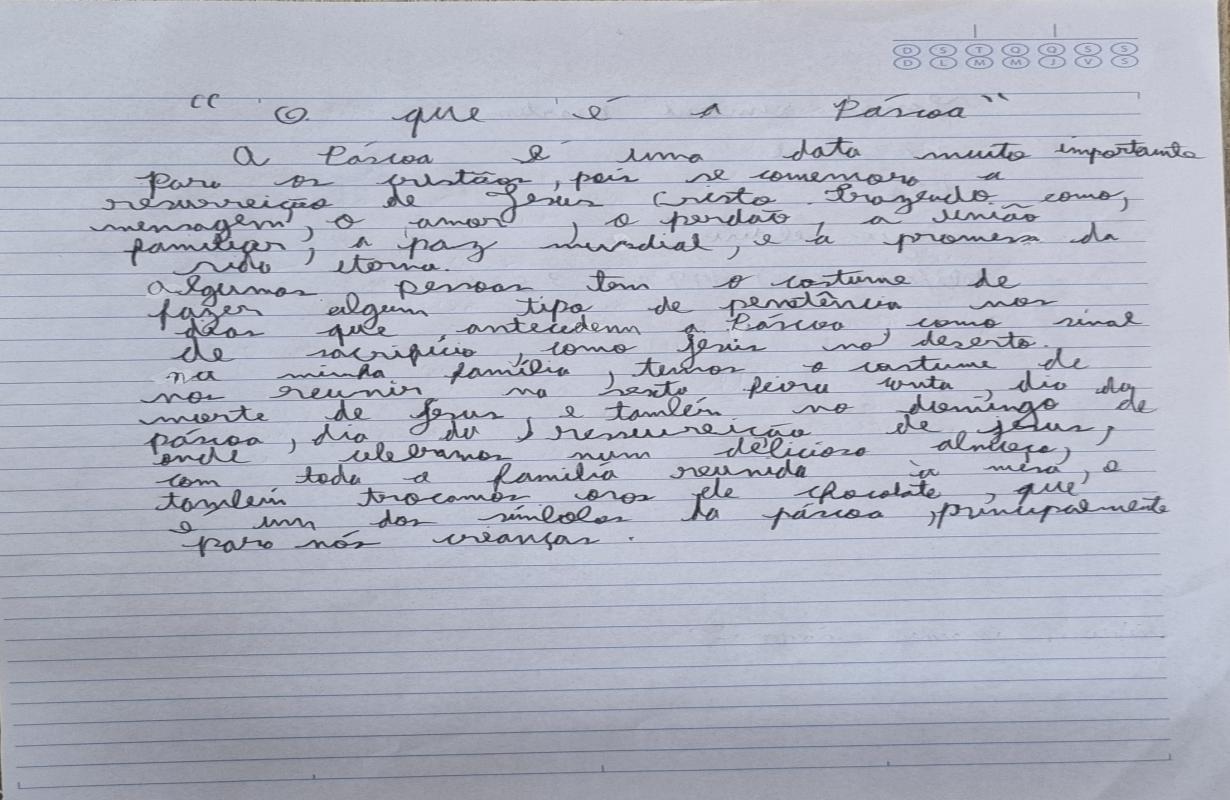 D S T Q Q S S
D L M M J V S
“ O que é a Páscoa ”
A Páscoa é uma data muito importante
para os cristãos, pois se comemora a
ressurreição de Jesus Cristo. Trazendo como,
mensagem, o amor, o perdão, a união
familiar, a paz mundial, e a promessa da
vida eterna.
Algumas pessoas tem o costume de
fazer algum tipo de penitência nos
dias que antecedem a Páscoa, como sinal
de sacrifício, como Jesus no deserto.
na minha família, temos o costume de
nos reunir na sexta feira santa, dia da
morte de Jesus, e também no domingo de
páscoa, dia da ressureição de Jesus,
onde celebramos num delicioso almoço,
com toda a família reunida à mesa, e
também trocamos ovos de chocolate, que
é um dos símbolos da páscoa, principalmente
para nós crianças.